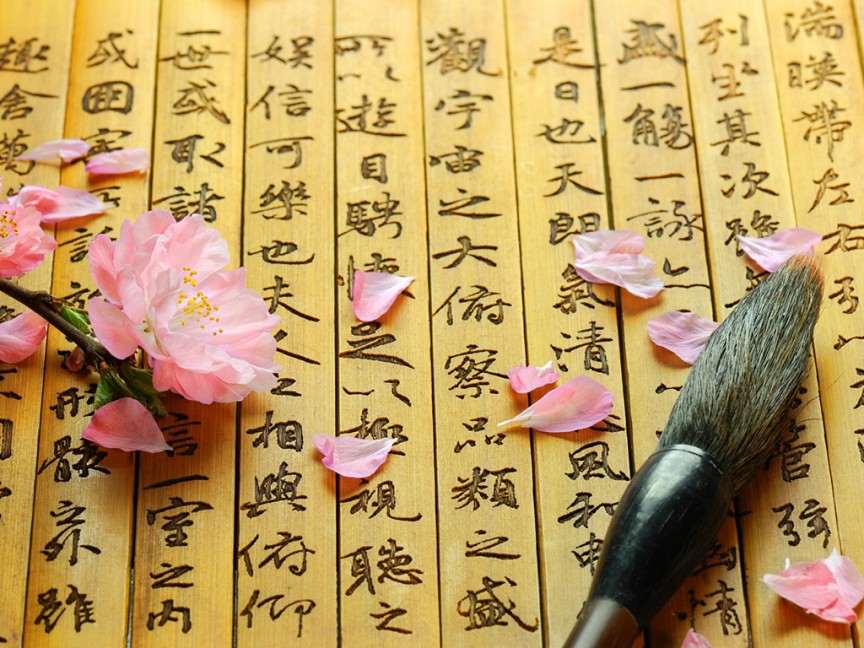 湍暎帶左右引以
列坐其次雖管弦
盛一觴一詠亦幽情
是日也天朗氣清風和
觀宇宙之大俯察品類之盛
所以遊目騁懷足以極視聽之
娛信可樂也夫人之相與俯仰
一世或取諸言一室之內
或因寄形骸之外雖
趣舍萬